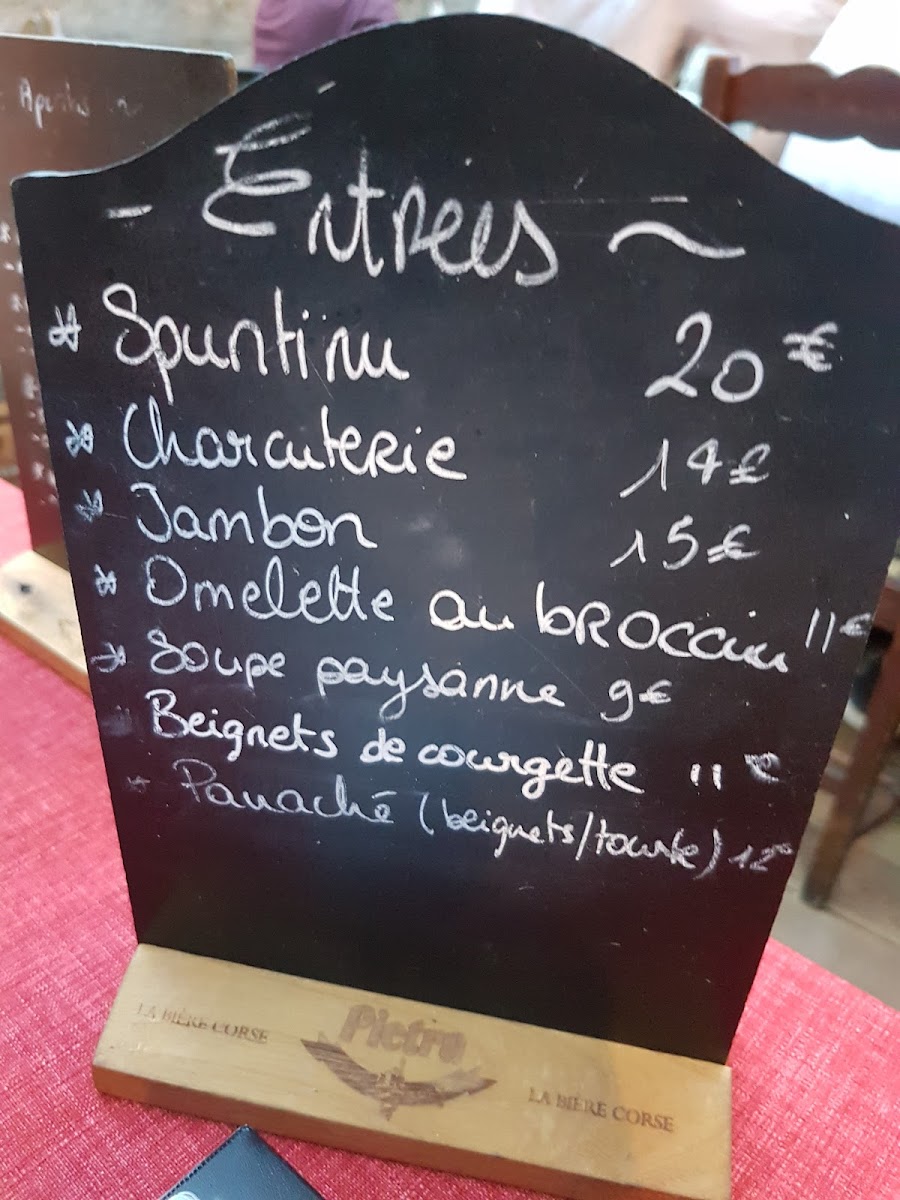 - Entrées ~
* Spuntinu 20€
* Charcuterie 14€
* Jambon 15€
* Omelette au bROcciu 11€
* Soupe paysanne 9€
Beignets de courgette 11€
* Panaché (beignets/tourte) 12€
LA BIÈRE CORSE Pietra LA BIÈRE CORSE